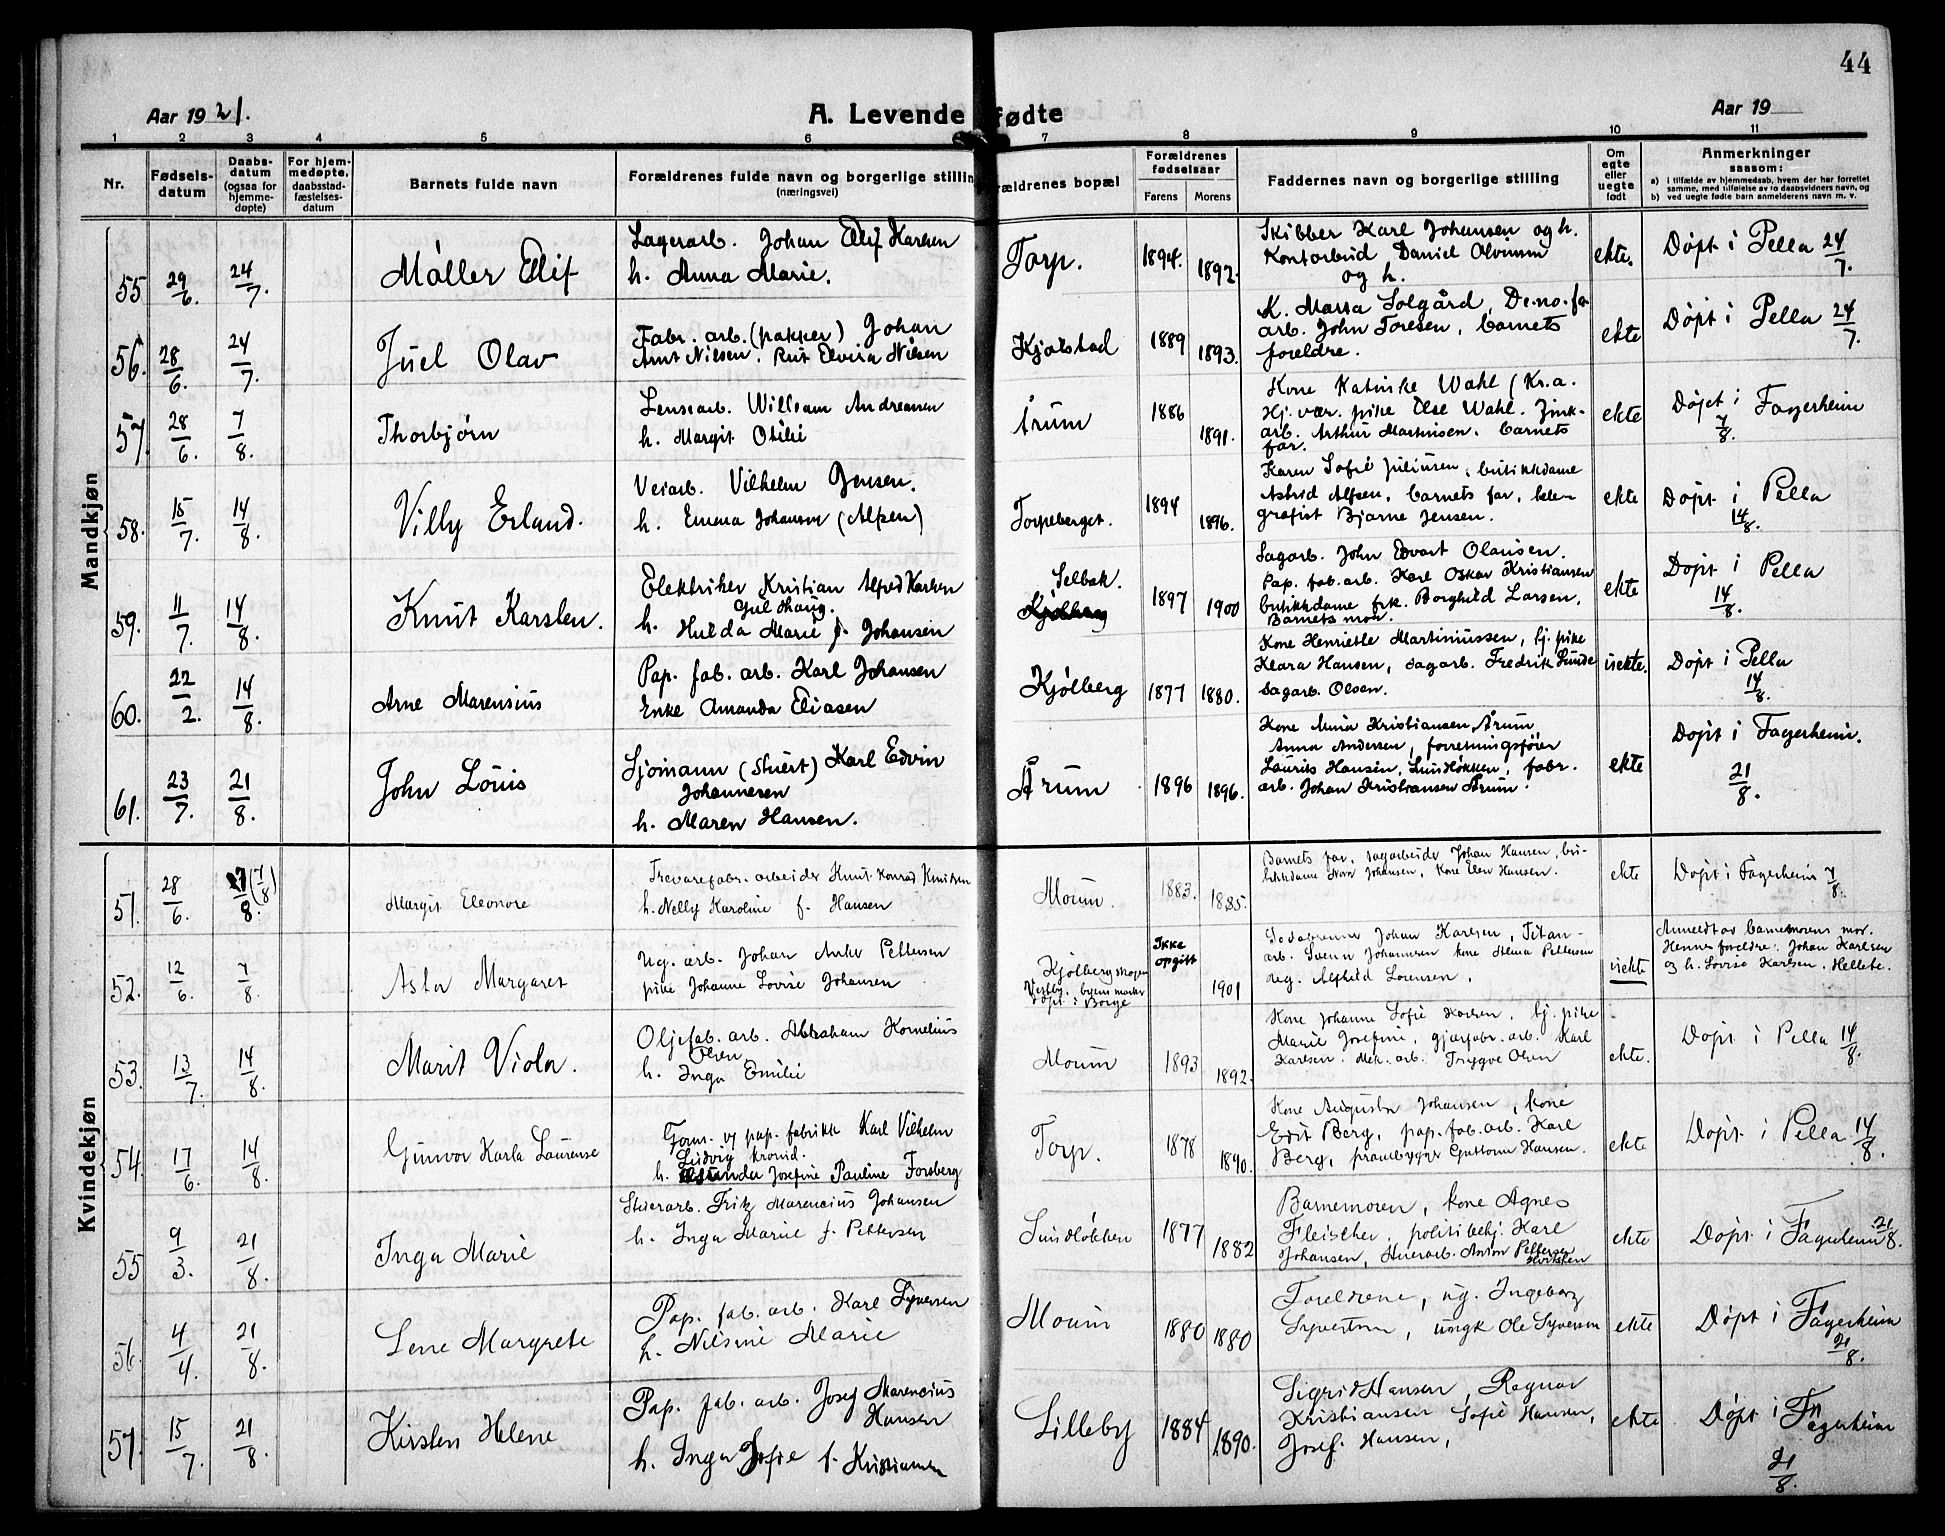 44
Aar 1921.
A. Levende fødte
Aar 19
1 2 3 4 5 6 7 8 9 10 11
Nr.
Fødsels-
datum
Daabs-
datum
(ogsaa for
hjemme-
døpte)
For hjem-
medøpte,
daabsstad-
fæstelses-
datum
Barnets fulde navn
Forældrenes fulde navn og borgerlige stilling
(næringsvei)
Forældrenes bopæl
Forældrenes
fødselsaar
Farens
Morens
Faddernes navn og borgerlige stilling
Om
egte
eller
uegte
født
Anmerkninger
saasom:
a) i tilfælde av hjemmedaab, hvem der har forrettet
samme, med tilføielse av to daabsvidners navn, og
b) ved uegte fødte barn anmelderens navn m. v.
Mandkjøn
55 29/6. 24/7. Møller Elif
Lagerarb. Johan Elif Karlsen
h. Anna Marie.
Torp. 1894. 1892.
Skibber Karl Johansen og h.
Kontorbud Daniel
og h.
ekte. Døpt i Pella 24/7.
56. 28/6. 24/7. Juel Olav
Fabr. arb. (pakker) Johan
Arnt Nilsen. Rut Elvira Nilsen
Kjølstad 1889 1893.
K. Massa Solgård,
arb. John Toresen, barnets
foreldre.
ekte Døpt i Pella 24/7.
57. 28/6. 7/8. Thorbjørn
Lensearb. William Andreassen
h. Margit Otilie
Årum 1886 1891.
Kone Katinke Wahl (Kr.a.
Hj. vær. pike Else Wahl. Zink-
arb. Arthur Martinsen. barnets
far.
ekte Døpt i Fagerheim 7/8.
58. 15/7. 14/8. Villy Erland.
Veiarb. Vilhelm Jensen.
h. Emma Johansen (Alfsen)
Torpeberget. 1894 1896.
Karen Sofie Juliusen, butikkdame
Astrid Alfsen, barnets far, tele-
grafist Bjarne Jensen.
ekte Døpt i Pella 14/8.
59. 11/7. 14/8. Knut Karsten.
Elektriker Kristian Alfred Karlsen
Gulhaug.
h. Hulda Marie f. Johansen
Selbak.
Kjølberg
1897 1900
Sagarb. John Edvart Olausen.
Pap. fab. arb. Karl Oskar Kristiansen
butikkdame frk. Borghild Larsen,
Barnets mor.
ekte Døpt i Pella 14/8.
60. 22/2. 14/8. Arne Marensius
Pap. fab. arb. Karl Johansen
Enke Amanda Eliasen
Kjølberg 1877 1880.
Kone Henriette Martiniussen, hj. pike
Klara Hansen, sagarb. Fredrik Lunde
sagarb. Olsen.
uekte. Døpt i Pella 14/8.
61. 23/7. 21/8. John Louis
Sjømann (Stuert) Karl Edvin
Johannesen
h. Maren Hansen.
Årum 1896 1896.
Kone Anna Kristiansen, Årum
Anna Andersen, forretningsfører
Laurits Hansen, Sundløkken, fabr.
arb. Johan Kristiansen Årum.
ekte Døpt i Fagerheim. 21/8.
Kvindekjøn
51. 28/6. 7/8. (7/8) Margit Eleonore
Trevarefabr. arbeider Knut Konrad Knutsen
h. Nelly Karoline f. Hansen
Moum. 1883. 1885.
Barnets far, sagarbeider Johan Hansen, bu-
tikkdame Nora Johansen, Kone Elen Hansen.
ekte Døpt i Fagerheim 7/8.
52. 12/6. 7/8. Aslor Margaret
Ug. arb. Johan Anker Pettersen
pike Johanne Lovise Johansen
Kjølbergskogen
døpt i Borge
Ikke
opgitt
1901
Johan Karlsen, Titan-
arb. Svenn Johannesen kone Alma Pettersen
ug. Alfhild Lorensen,
uekte
Anmeldt av barnemorens mor.
Hennes foreldre: Johan Karlsen
og h. Lovise Karlsen. Hellebe.
53. 13/7. 14/8. Marit Viola.
Oljefab. arb. Abraham Kornelius
Olsen
h. Inga Emilie
Moum 1893 1892.
Kone Johanne Sofie Karlsen, hj. pike
Marie Josefine, gjærfabr. arb. Karl
Karlsen. Mek. arb. Trygve Olsen
ekte. Døpt i Pella 14/8.
54. 17/6. 14/8. Gunvor Karla Laurense
Form. v/ pap. fabrikk Karl Vilhelm
Ludvig
h. Josefine Pauline Forsberg
Torp. 1878 1890.
Kone Augusta Johansen, kone
Edit Berg, pap. fab. arb. Karl
Berg, prambygger Guttorm Hansen.
ekte Døpt i Pella 14/8.
55 9/3. 21/8. Inga Marie
Stuerarb. Fritz Marencius Johansen
h. Inga Marie f. Pettersen
Sundløkken 1877 1882
Barnemoren, kone Agnes
Fleischer, politibetj. Karl
Johansen, stuerarb. Anton Pettersen
ekte Døpt i Fagerheim 21/8.
56. 4/4. 21/8. Lene Margrete
Pap. fab. arb. Karl Syversen
h. Nilsine Marie
Moum 1880 1880
Foreldrene, ug. Ingeborg
Syvertsen, ungk Ole Syversen
ekte Døpt i Fagerheim 21/8.
57. 15/7. 21/8. Kirsten Helene
Pap. fab. arb. Josef Marencius
Hansen
h. Inga Sofie f. Kristiansen
Lilleby 1884 1890.
Sigrid Hansen, Ragnar
Kristiansen Sofie Hansen,
Josef. Hansen,
ekte Døpt i Fagerheim 21/8.